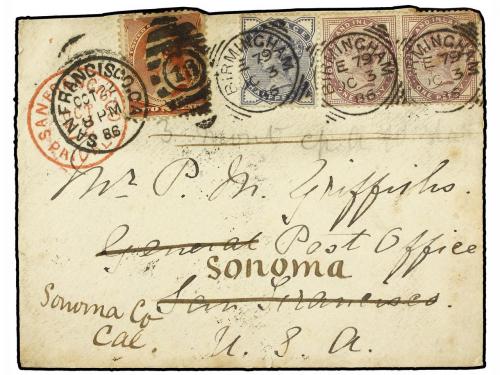 BIRMINGHAM
E 79
C 3
86
BIRMINGHAM
E 79
C 3
86
BIRMINGHAM
E 79
C 3
86
SAN FRANCISCO
OCT
8 PM
86
SAN
PAID
Mr P. M. Griffiths.
General Post Office
Sonoma
San Francisco.
Sonoma Co
Cal.
U. S. A.